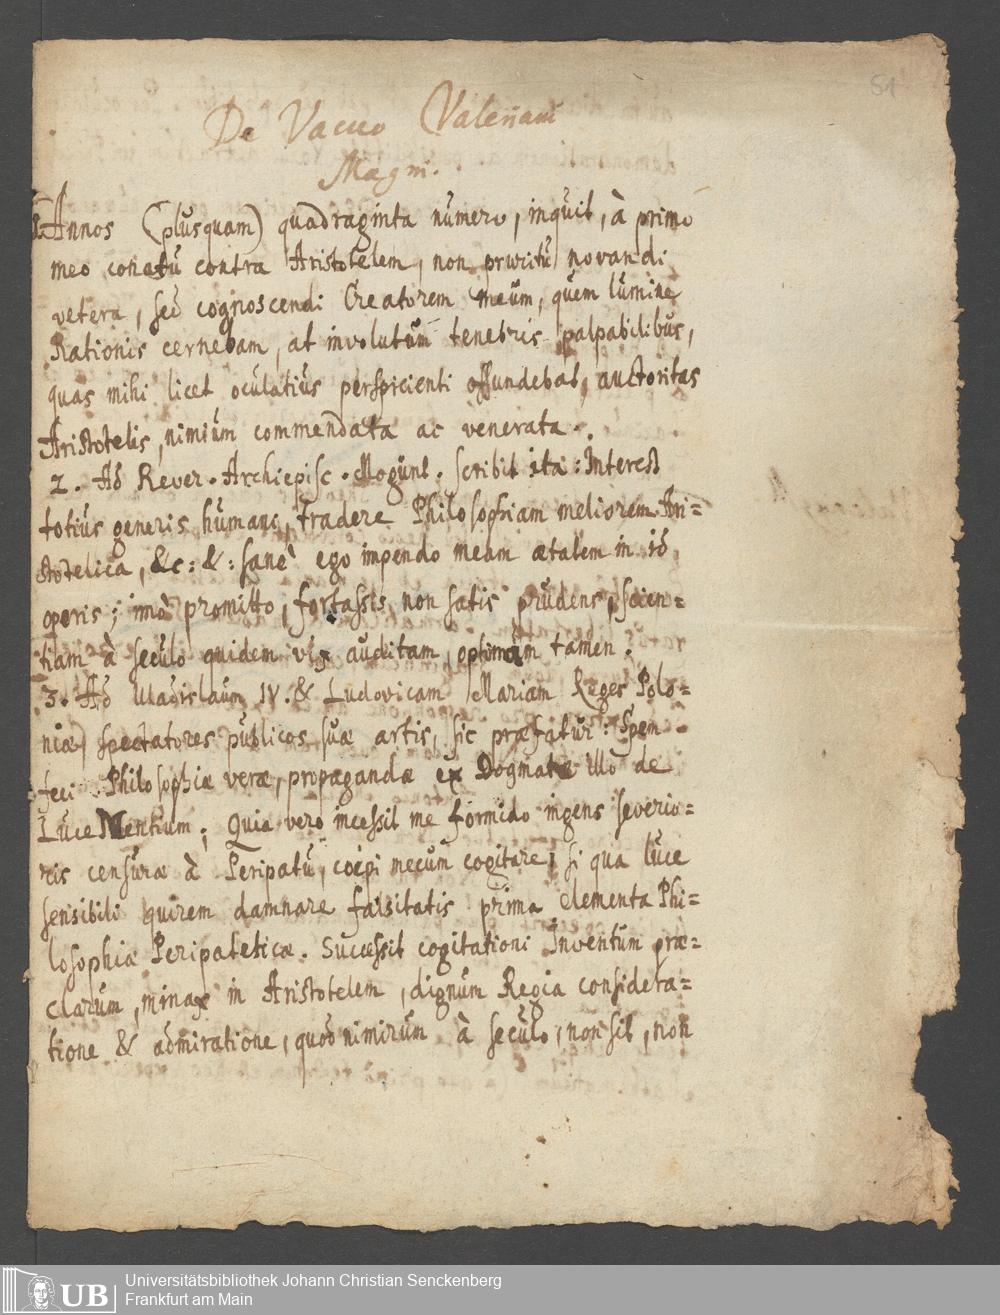 51
De Vacuo Valeriani
Magni.
1. Annos (plusquam) quadraginta numero, inquit, à primo
meo conatu contra Aristotelem, non pruritu novandi
vetera, sed cognoscendi Creatorem meum, quem lumine
Rationis cernebam, at involutum tenebris palpabilibus,
quas mihi licet oculatius perspicienti offundebat, auctoritas
Aristotelis, nimium commendata ac venerata.
2. Ad Rever. Archiepisc. Mogunt. scribit ita: Interest
totius generis humani, tradere Philosophiam meliorem Ari=
stotelica, &c: &: sanè ego impendo meam ætatem in id
operis; imò promitto, fortassis non satis prudens, scien=
tiam à seculo quidem vix auditam, optimam tamen.
3. Ad Uladislaum IV. & Ludovicam Mariam Reges Polo=
niæ, spectatores publicos suæ artis, sic præfatur: Spem
feci Philosophiæ veræ, propagandæ ex Dogmate illo de
Luce Mentium; Quia vero incessit me formido ingens severio=
ris censuræ à Peripatu, coepi mecum cogitare, si qua luce
sensibili quirem damnare falsitatis prima elementa Phi=
losophiæ Peripateticæ. Successit cogitationi Inventum præ=
clarum, minax in Aristotelem, dignum Regia considera=
tione & admiratione, quod nimirum à seculo, non sit, non
UB
Universitätsbibliothek Johann Christian Senckenberg
Frankfurt am Main